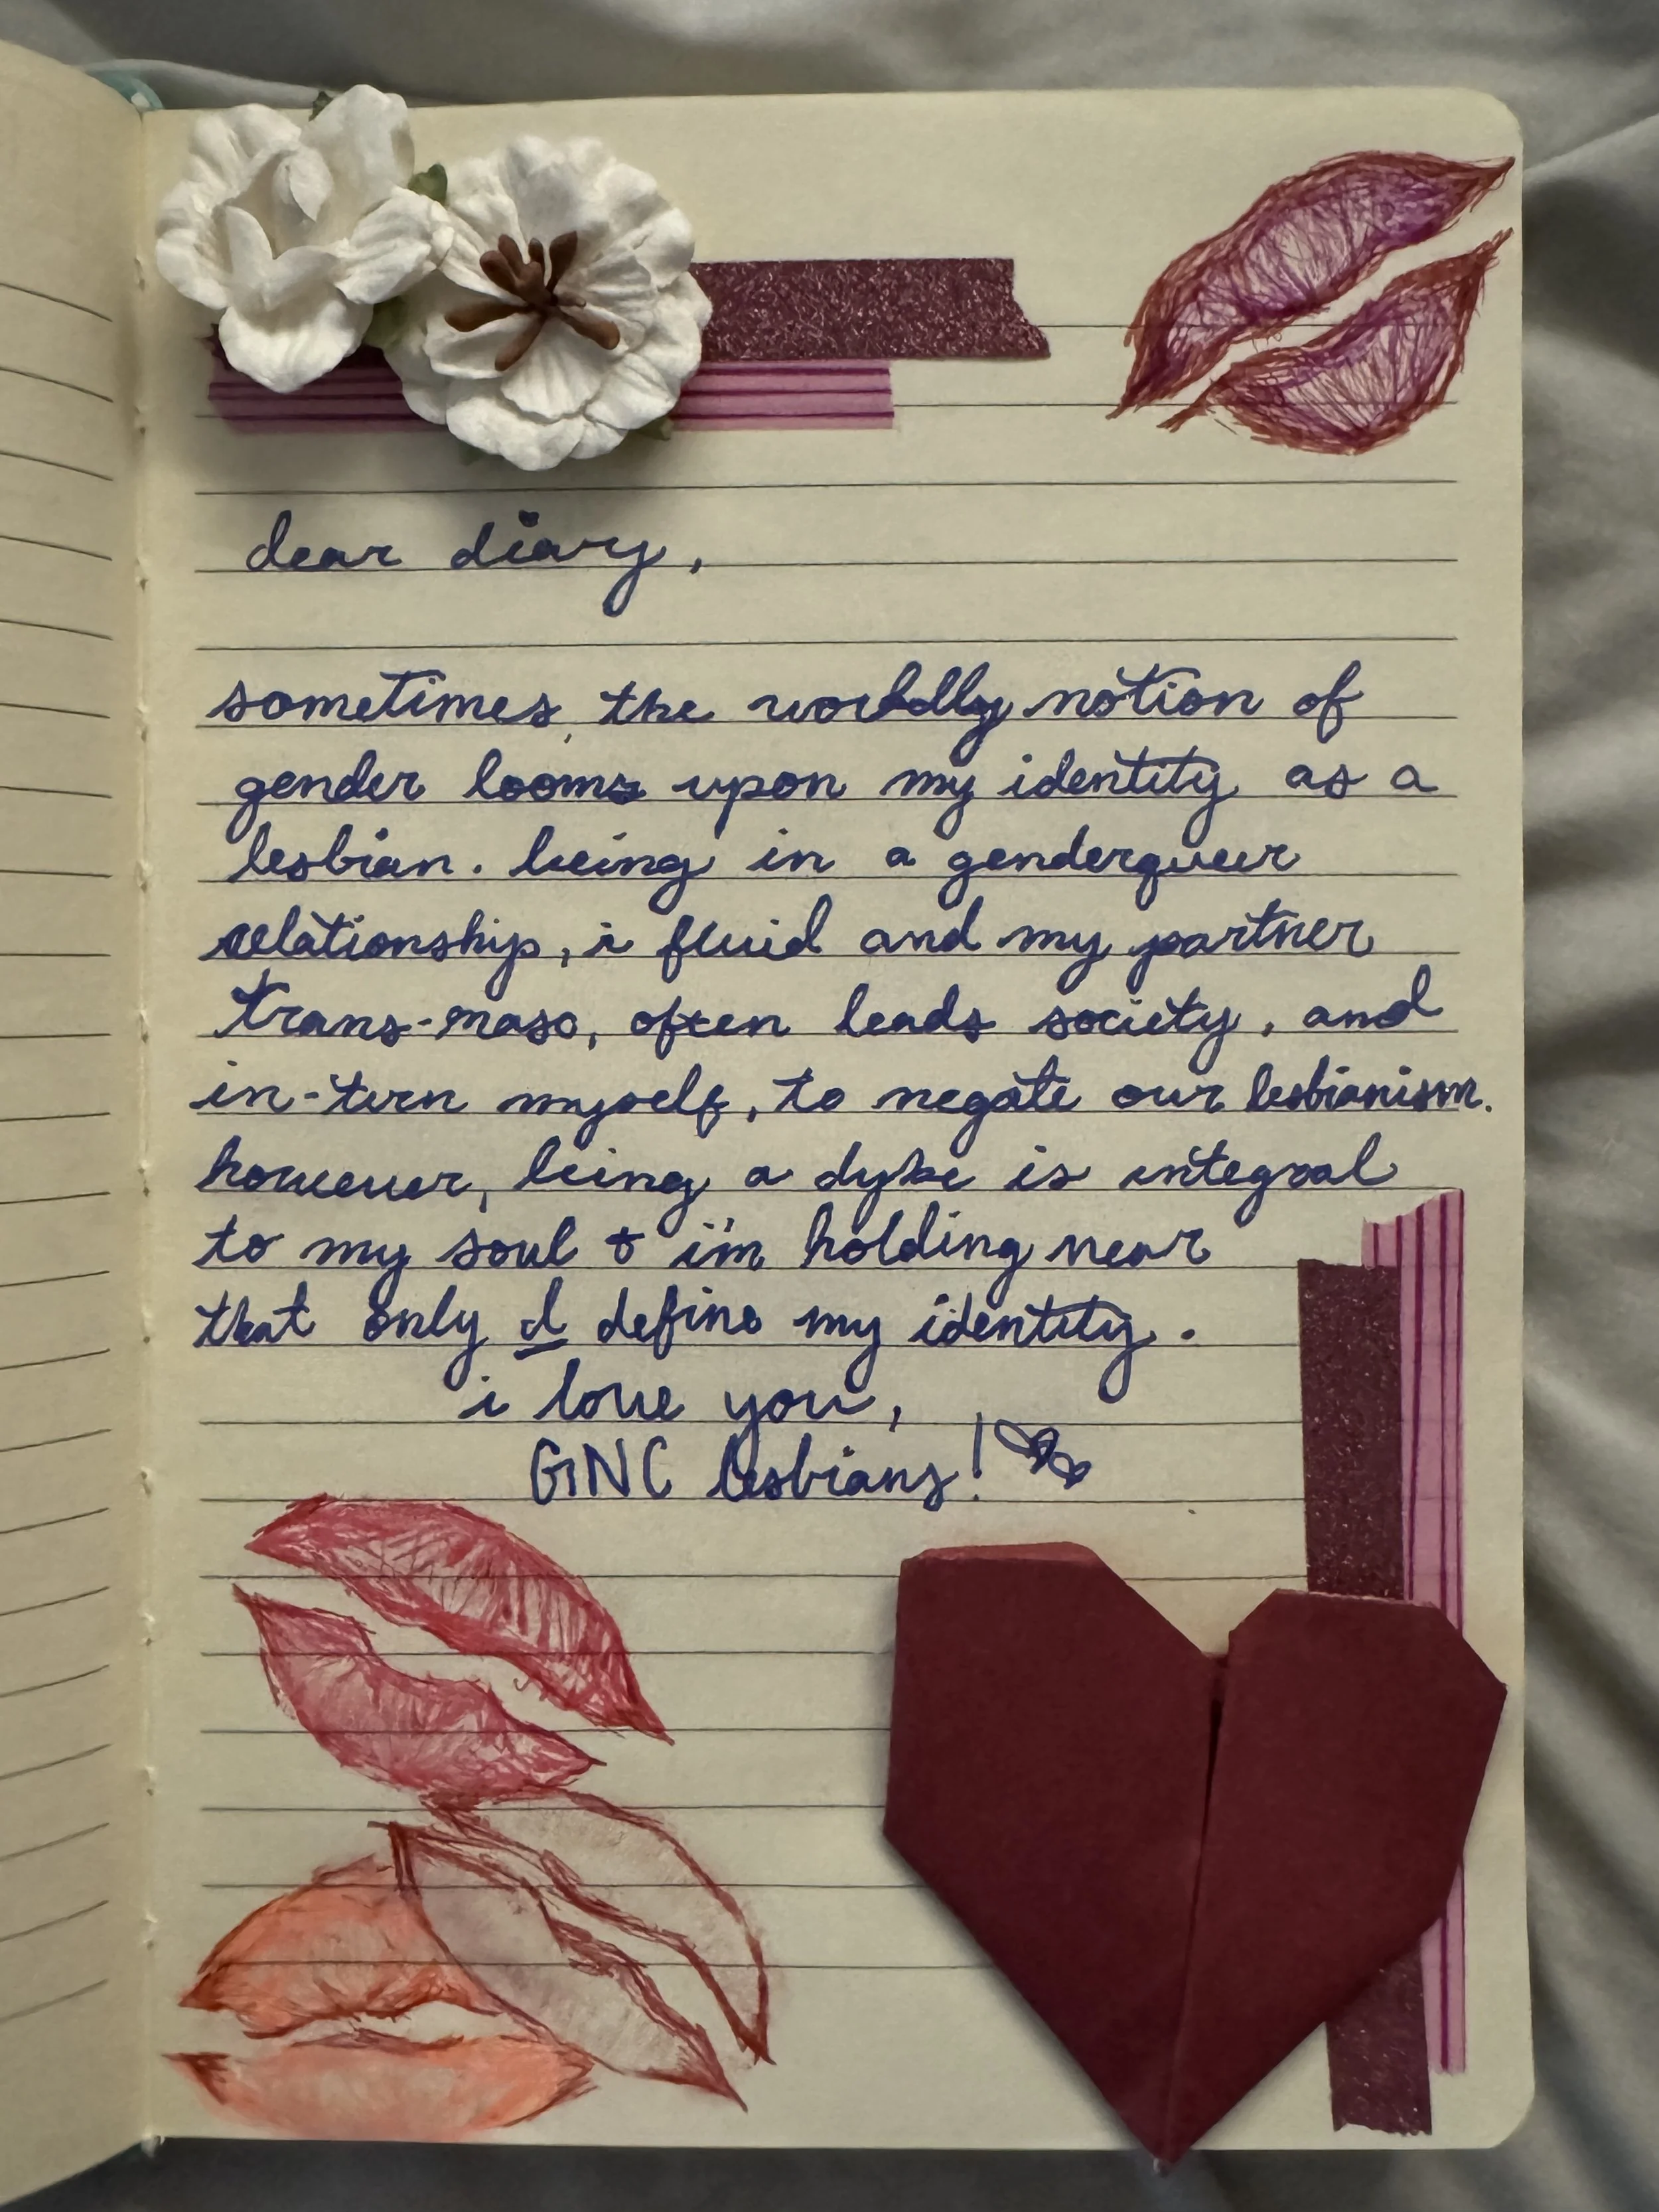 dear diary,
sometimes the worldly notion of
gender looms upon my identity as a
lesbian. being in a genderqueer
relationship, i fluid and my partner
trans-masc, often leads society, and
in-turn myself, to negate our lesbianism.
however, being a dyke is integral
to my soul & i'm holding near
that only I define my identity.
i love you,
GNC lesbians!